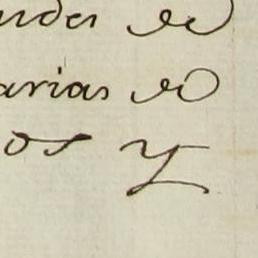 udes de
arias de
os y